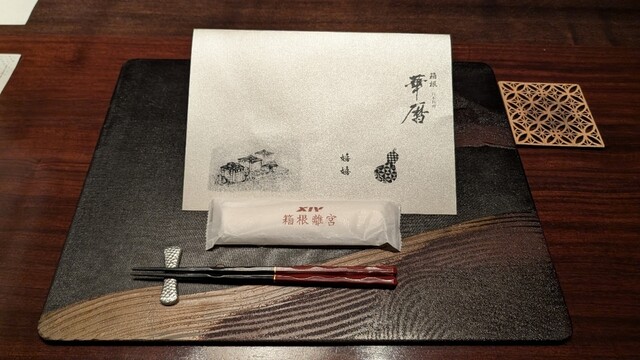 箱根
華暦
嬉嬉
XIV
箱根離宮